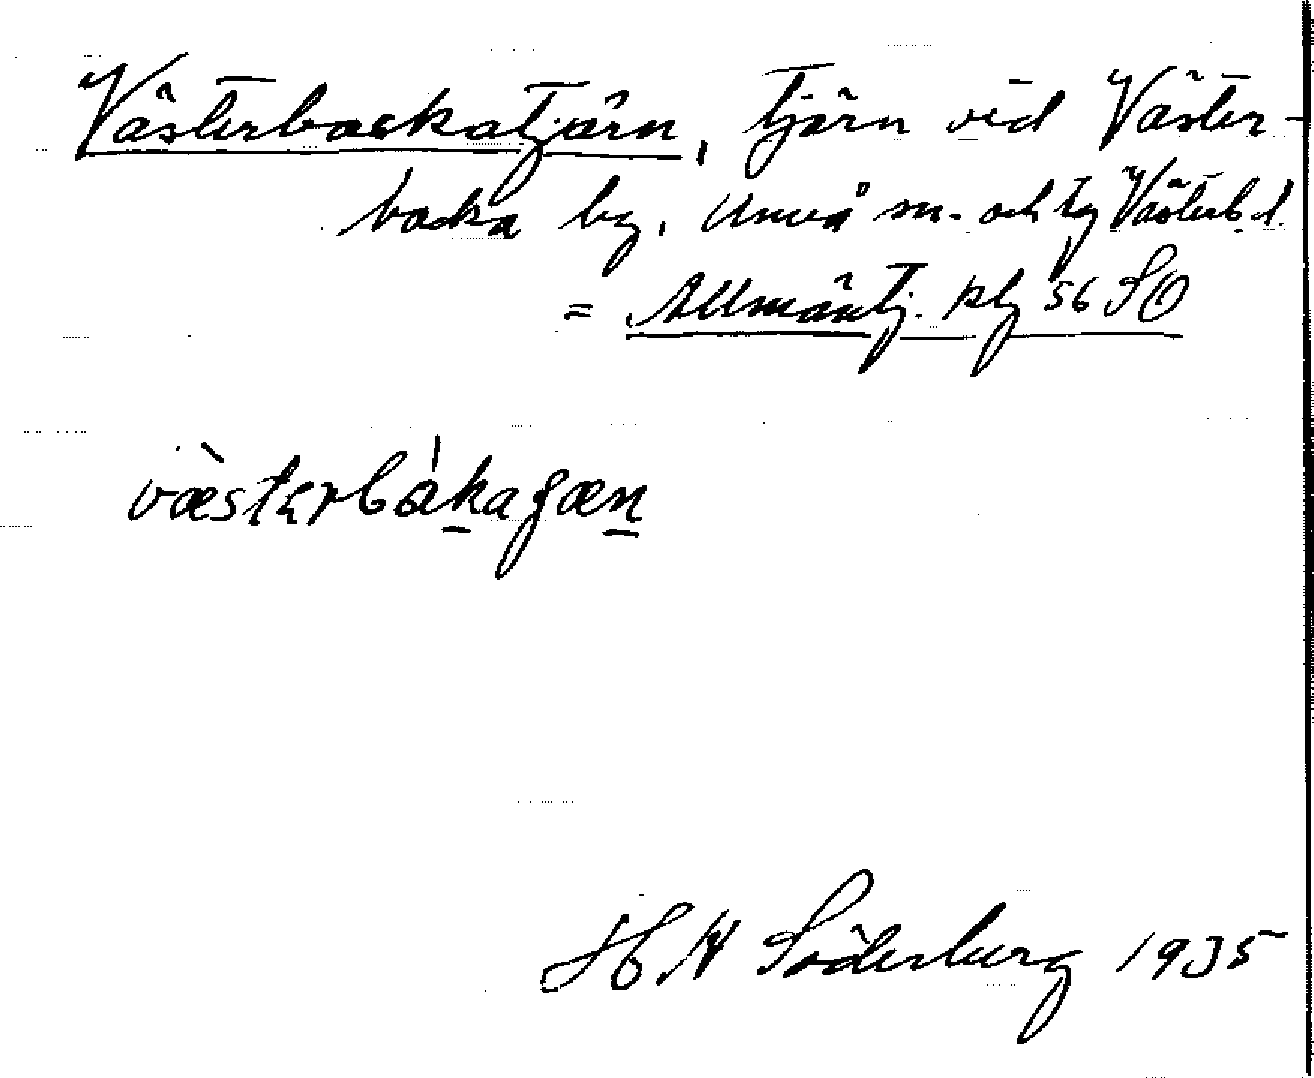 Västerbackatjärn, tjärn vid Väster-
backa by, Umeå sn- och tg Västerb.d.
= Allmäntj. kbl 56 SO
västerbàkaʃæn
H N Söderberg 1935